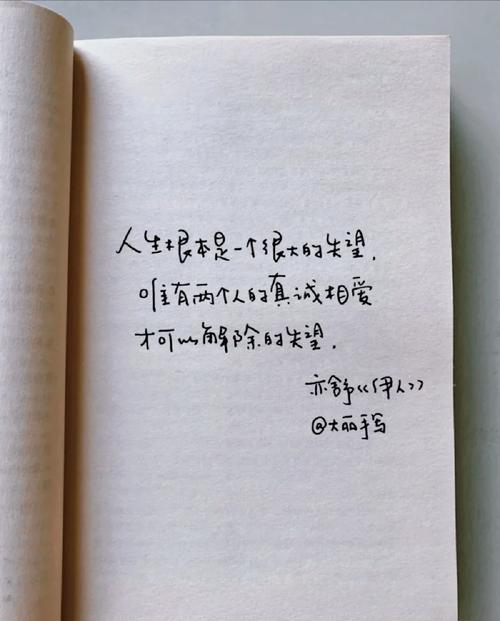 人生根本是一个很大的失望，
唯有两个人的真诚相爱
才可以解除的失望．
亦舒《伊人》
@大丽手写